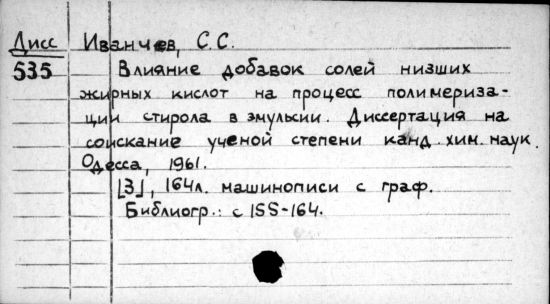 Дисс Иванчев, С.С.
535 Влияние добавок солей низших
жирных кислот на процесс полимериза-
ции стирола в эмульсии. Диссертация на
соискание ученой степени канд. хим. наук.
Одесса, 1961.
[3], 164л. машинописи с граф.
Библиогр.: с 155-164.